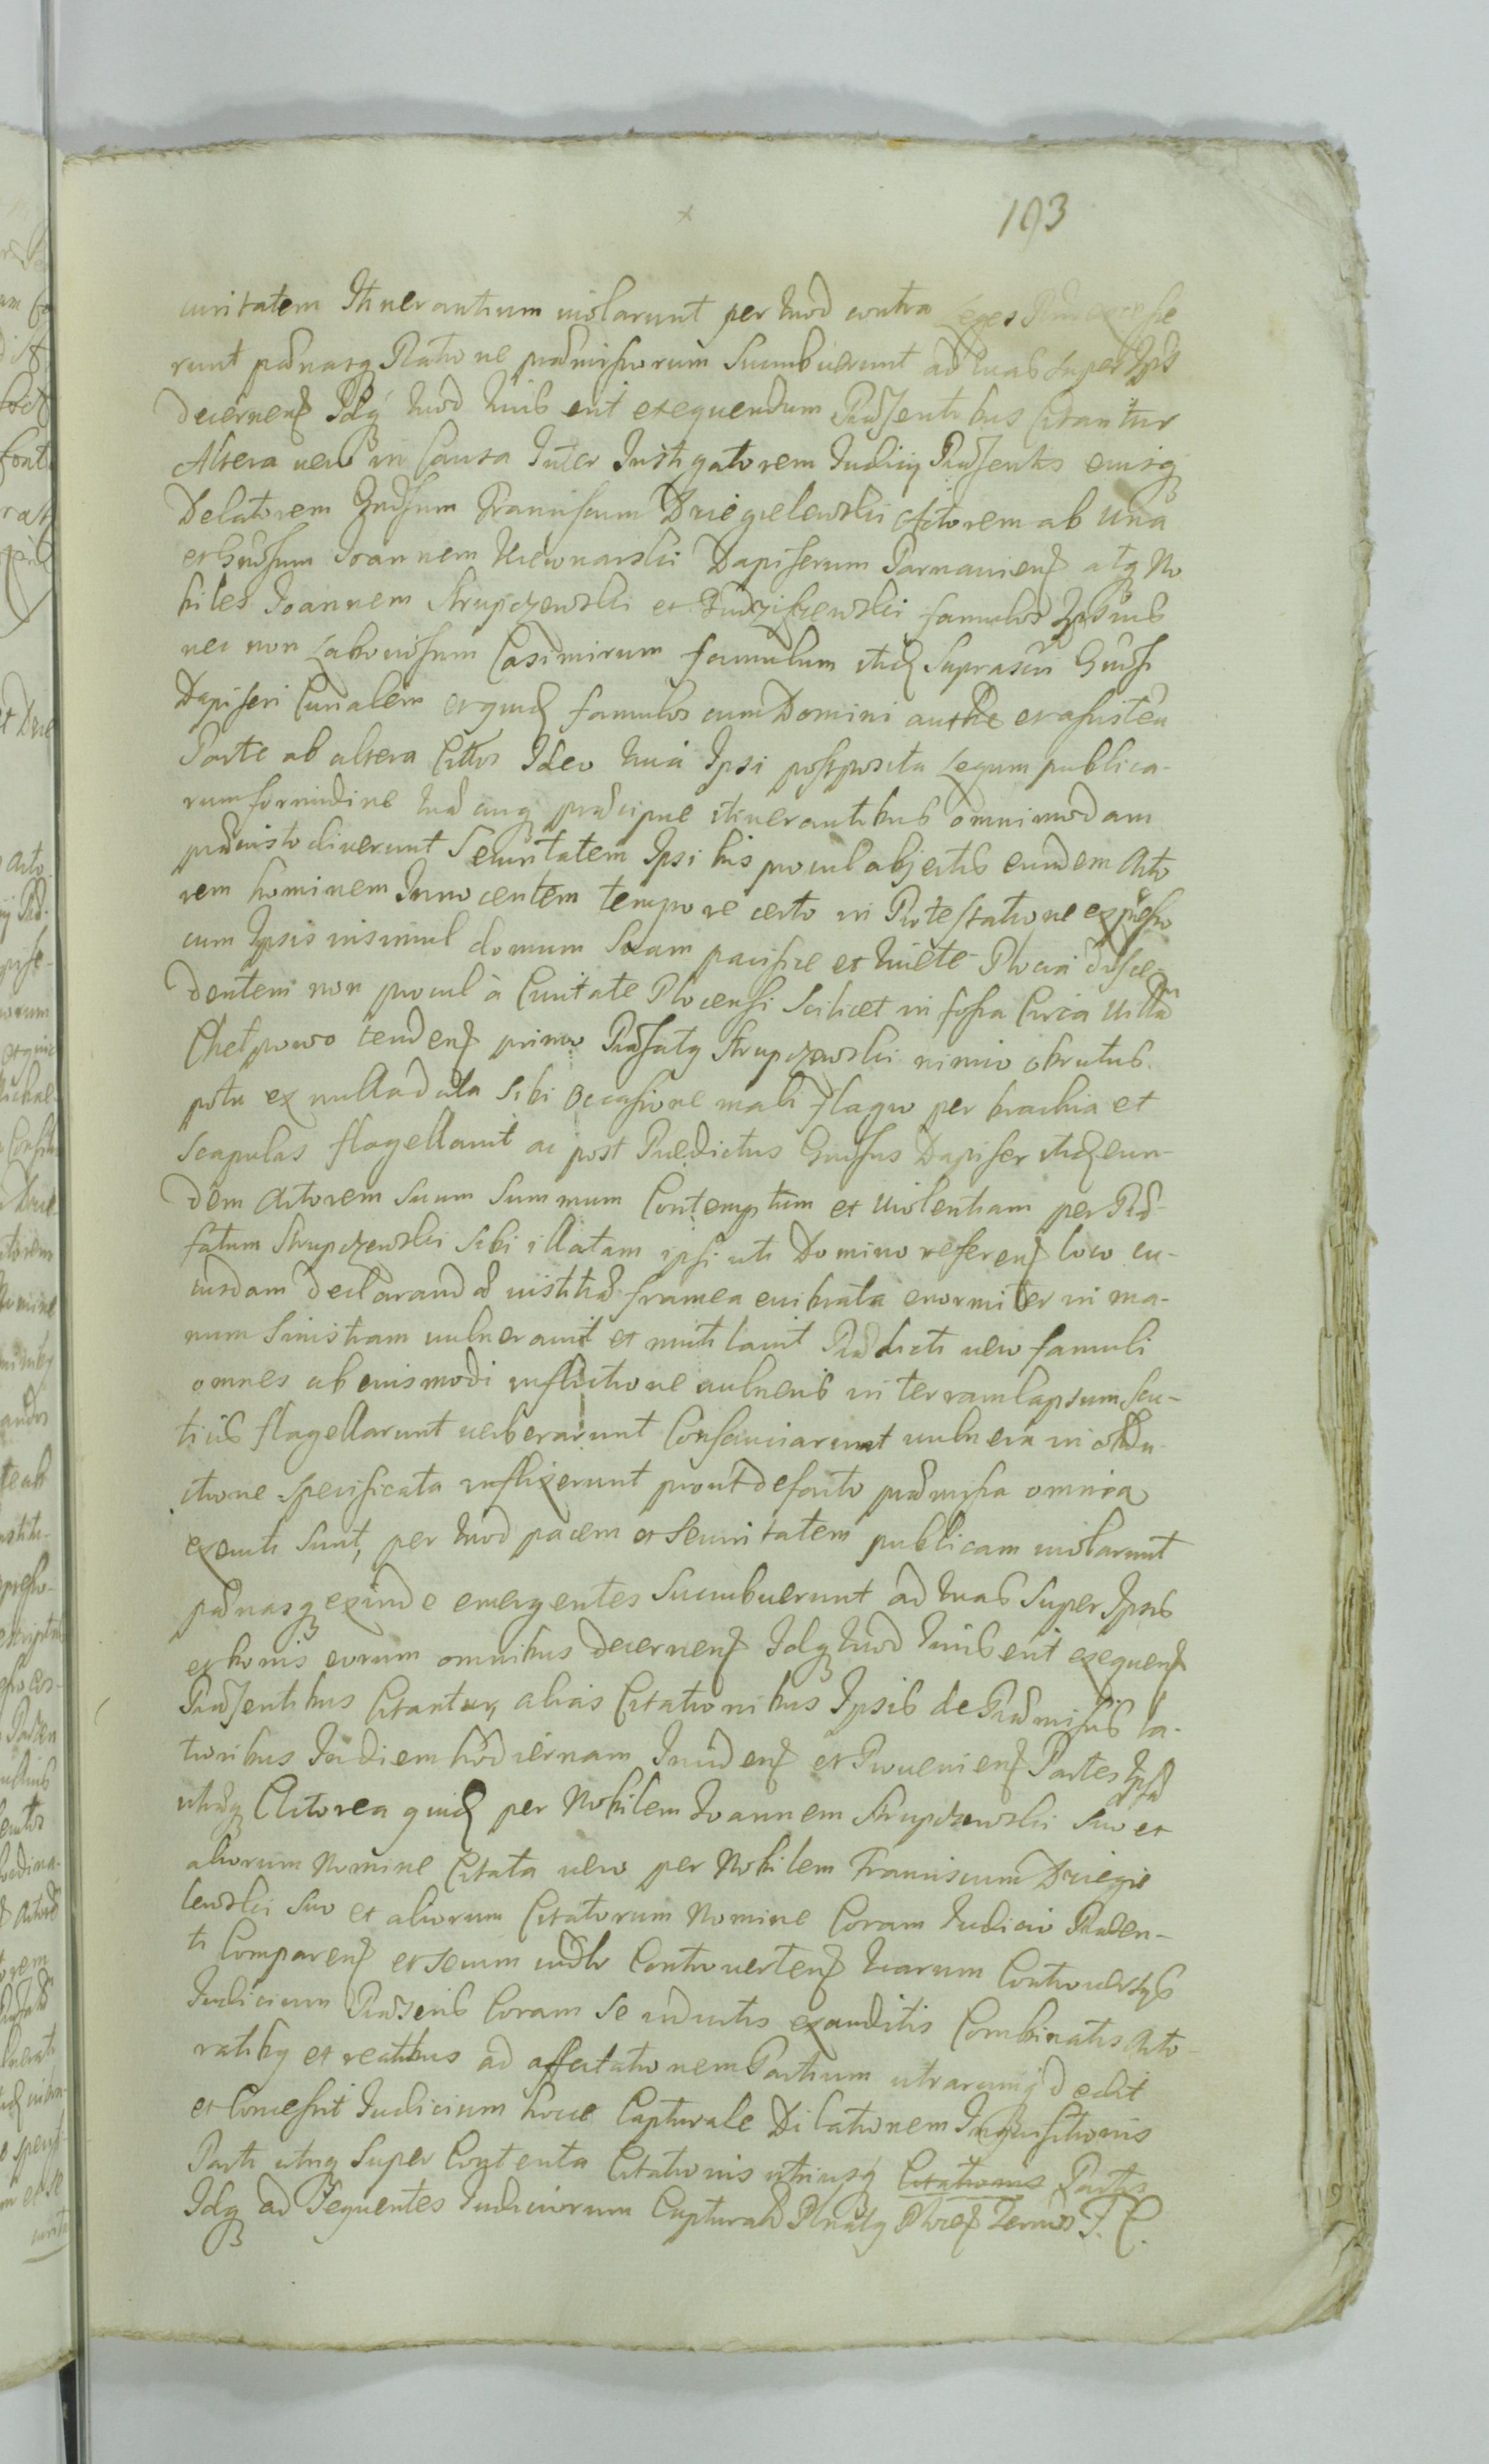 193
curitatem Itinerantium violarunt per quod contra Leges
runt pœnasq Ratione præmissorum Sucumbuerunt ad quas super Ipsis
decernend Idq quod Iuris erit exequendum Præsentibus Citantur
Altera vero in Causa Inter Instigatorem Iudicij Præsentis eiusq
Delatorem Gnrsum Franciscum Dziegielewski Actorem ab una
et Gnrsum Ioannem Dapiferum Parnaviens atq No
biles Ioannem Skupczewski et famulos Ipsius
nec non Laboriosum Casimirum famulum itid Suprascri Gnrsi
Dapiferi Curialem et quid famulos cum Domini et assisten
Parte ab altera Cittos Ideo quia Ipsi postposita Legum publica-
rum formidine quæcunq præcipue itinerantibus omnimodam
præcustodiverunt Securitatem Ipsi his procul abjectis eundem Acto
rem hominem Innocentem tempore certo in Protestatione expresso
cum Ipsis insimul domum Suam pacifice et quiete Plocia disce-
dentem non procul à Civitate Plocensi Scilicet in fossa Circa Villam
Chełpowo tendend primo Præfatq Skupczewski nimio obrutus
potu ex nulla data sibi occasione mali flagro per brachia et
Scapulas flagellavit ac post Prædictus Gnrsus Dapifer itid eun-
dem Actorem Suum Summum Contemptum et violentiam per Præ-
fatum Skupczewski Sibi illatam ipsi uti Domino referend loco cu-
iusdam declarandæ iustitiæ framea evibrata enormiter in ma-
num Sinistram vulneravit et mutilavit Prædicti vero famuli
omnes ab eiusmodi inflictione vulneris in terram lapsum Scu-
ticis flagellarunt verberarunt Consauciarunt vulnera in obdu-
ctione specificata inflixerunt prout de facto præmissa omnia
executi Sunt, per quod pacem et Securitatem publicam violarunt
pœnasq exinde emergentes Sucumbuerunt ad quas Super Ipsis
et bonis eorum omnibus decernend Idq quod Iuris erit exequend
Præsentibus Citantur, alias Citationibus Ipsis de Præmissis la-
tioribus In diem hodiernam Inciden et Provenien Partes Ipsæ
utræq Actorea quid per Nobilem Ioannem Skupczewski Suo et
aliorum Nomine Citata vero per Nobilem Franciscum Dziegie
lewski Suo et aliorum Citatorum Nomine Coram Iudicio Præsen-
ti Comparend et secum iudlr Controvertend quarum Controversijs
Iudicium Præsens Coram Se inductis exauditis Combinatis Acto-
ratibq et reatibus ad affectationem Partium utrarumq dedit
et Concessit Iudicium hocce Capturale Dilationem Inquisitionis
Parti utriq Super Contenta Citationis utriusq Citationis Partis
Idq ad Sequentes Iudiciorum Capturaliu Terminos